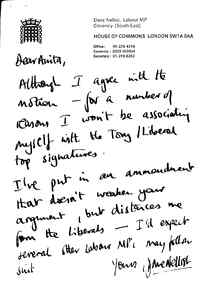 Dave Nellist, Labour MP
Coventry (South East)
HOUSE OF COMMONS LONDON SW1A 0AA
Office: 01-219 4214
Dear Anita,
Although I agree with the
motion – for a number of
reasons I won't be associating
myself with the Tory/Liberal
top signatures.
I've put in an ammendment
that doesn't weaken your
argument, but distances me
from the Liberals – I'd expect
several other Labour MPs may follow
suit
Yours, Dave Nellist